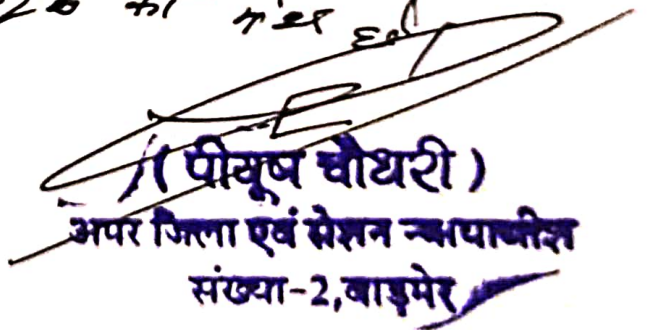 का
(पीयूष चौधरी)
अपर जिला एवं सेशन न्यायाधीश
संख्या-2,बाड़मेर